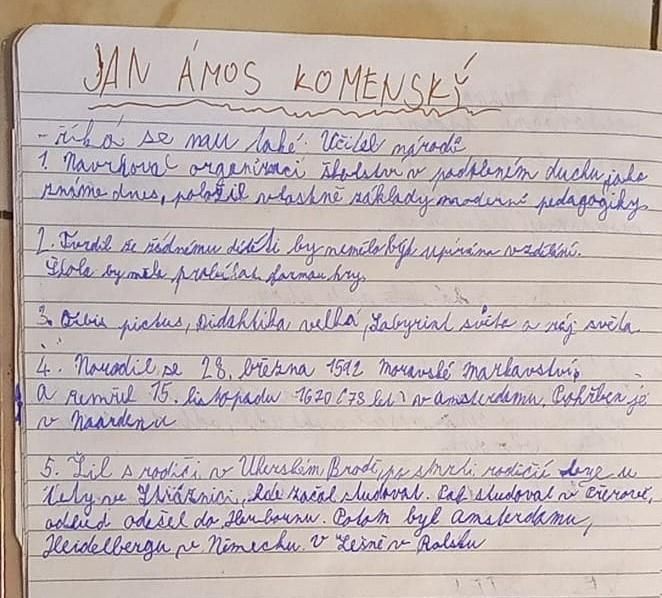 JAN ÁMOS KOMENSKÝ
- říká se mu také: Učitel národů
1. Navrhoval organizaci školství v podobném duchu, jako
známe dnes, položil vlastně základy moderní pedagogiky
2. Tvrdil že žádnému dítěti by nemělo být upíráno vzdělání.
Škola by měla probíhat formou hry.
3. Orbis pictus, Didaktika velká, Labyrint světa a ráj světa
4. Narodil se 28. března 1592 Moravské Markavství,
a zemřel 15. listopadu 1620 (78 let) v Amsterdamu, Pohřben je
v Naardenu
5. Žil s rodiči v Uherském Brodě, po smrti rodičů u
tety ve Strážnici, kde začal studovat. Pak studoval v Přerově,
odkud odešel do Herbornu. Potom byl Amsterdamu,
Heidelbergu v Německu. v Lešně v Polsku